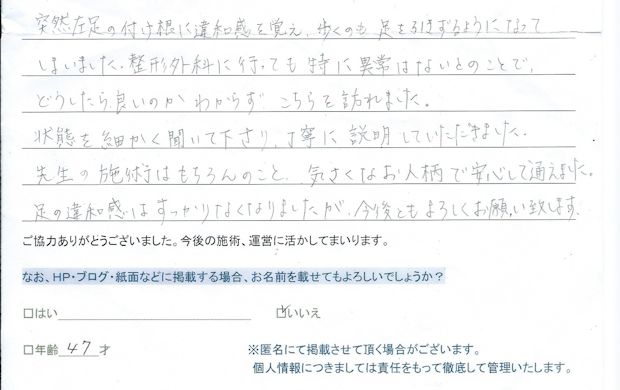 突然左足の付け根に違和感を覚え、歩くのも足をひきずるようになって
しまいました。整形外科に行っても特に異常はないとのことで、
どうしたら良いのかわからず こちらを訪れました。
状態を細かく聞いて下さり、丁寧に説明していただきました。
先生の施術はもちろんのこと、気さくなお人柄で安心して通えました。
足の違和感はすっかりなくなりましたが、今後ともよろしくお願い致します。
ご協力ありがとうございました。今後の施術、運営に活かしてまいります。
なお、HP・ブログ・紙面などに掲載する場合、お名前を載せてもよろしいでしょうか？
□はい ☑いいえ
□年齢 47 才 ※匿名にて掲載させて頂く場合がございます。
個人情報につきましては責任をもって徹底して管理いたします。